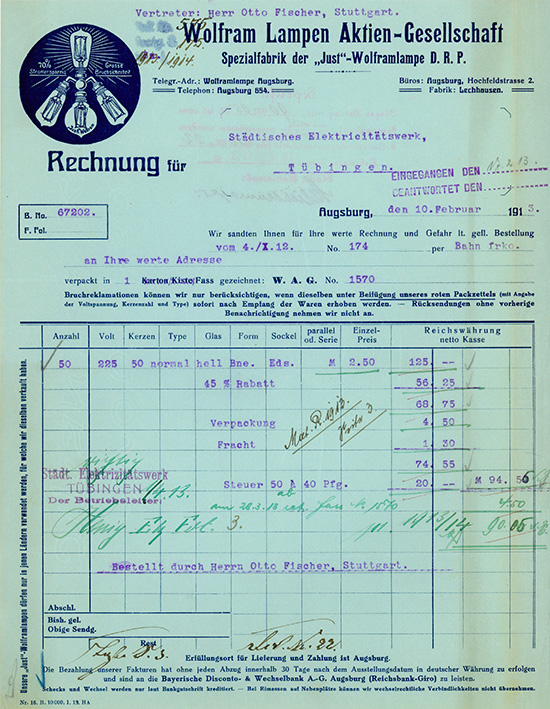 Vertreter: Herr Otto Fischer, Stuttgart.
Wolfram Lampen Aktien-Gesellschaft
Spezialfabrik der „Just“-Wolframlampe D. R. P.
70% Stromersparnis
Grosse Bruchsicherheit
Just-Wolfram
Telegr.-Adr.: Wolframlampe Augsburg.
Telephon: Augsburg 654.
Büros: Augsburg, Hochfeldstrasse 2.
Fabrik: Lechhausen.
Städtisches Elektricitätswerk,
Rechnung für
Tübingen.
EINGEGANGEN DEN
BEANTWORTET DEN
B. No. 67202.
F. Fol.
Augsburg, den 10. Februar 1913.
Wir sandten Ihnen für Ihre werte Rechnung und Gefahr lt. gefl. Bestellung
vom 4./X.12. No. 174 per Bahn frko.
an Ihre werte Adresse
verpackt in 1 Karton/Kiste/Fass gezeichnet: W. A. G. No. 1570
Bruchreklamationen können wir nur berücksichtigen, wenn dieselben unter Beifügung unseres roten Packzettels (mit Angabe
der Voltspannung, Kerzenzahl und Type) sofort nach Empfang der Waren erhoben werden. — Rücksendungen ohne vorherige
Benachrichtigung nehmen wir nicht an.
Anzahl Volt Kerzen Type Glas Form Sockel parallel od. Serie Einzel-Preis Reichswährung netto Kasse
50 225 50 normal hell Bne. Eds. M 2.50 125.--
45 % Rabatt 56.25
68 75
Verpackung 4.50
Fracht 1.30
74.55
Steuer 50 à 40 Pfg. 20.-- M 94.56
4.50
Mat. R. 1913.
Städt. Elektrizitätswerk
TÜBINGEN
Der Betriebsleiter:
1913/14
90.05
Bestellt durch Herrn Otto Fischer, Stuttgart.
Abschl.
Bish. gel.
Obige Sendg.
Rest
Unsere „Just“-Wolframlampen dürfen nur in jenen Ländern verwendet werden, für welche wir dieselben verkauft haben.
Erfüllungsort für Lieferung und Zahlung ist Augsburg.
Die Bezahlung unserer Fakturen hat ohne jeden Abzug innerhalb 30 Tage nach dem Ausstellungsdatum in deutscher Währung zu erfolgen
und sind an die Bayerische Disconto- & Wechselbank A.-G. Augsburg (Reichsbank-Giro) zu leisten.
Schecks und Wechsel werden nur laut Bankgutschrift kreditiert. — Bei Rimessen auf Nebenplätze können wir wechselrechtliche Verbindlichkeiten nicht übernehmen.
Nr. 16. B. 10000. 1. 13. HA